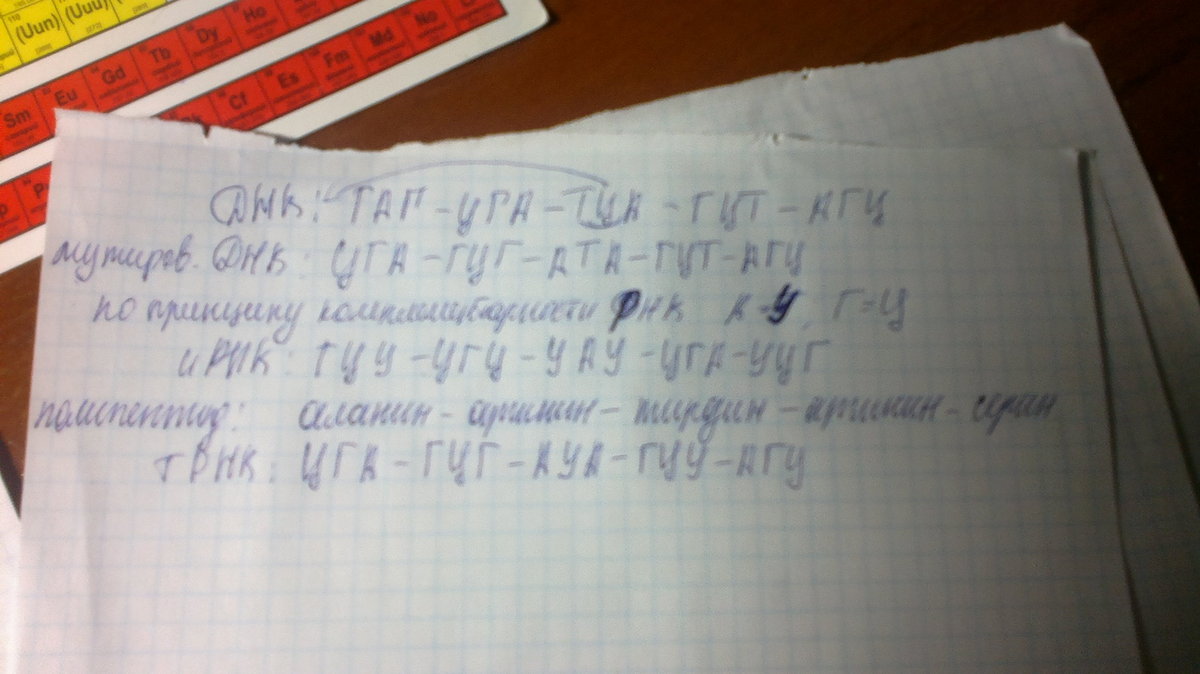 110
(Uun) (Uuu)
Sm Eu Gd Tb Dy Ho
Cf Es Fm Md No
ДНК: ГАГ - ЦГА - ТЦА - ГЦТ - АГЦ
мутиров. ДНК: ЦГА - ГЦГ - АТА - ГЦТ - АГЦ
по принципу комплементарности РНК А-У, Г=Ц
иРНК: ГЦУ - ЦГЦ - УАУ - ЦГА - УЦГ
полипептид: аланин - аргинин - тирозин - аргинин - серин
тРНК: ЦГА - ГЦГ - АУА - ГЦУ - АГЦ